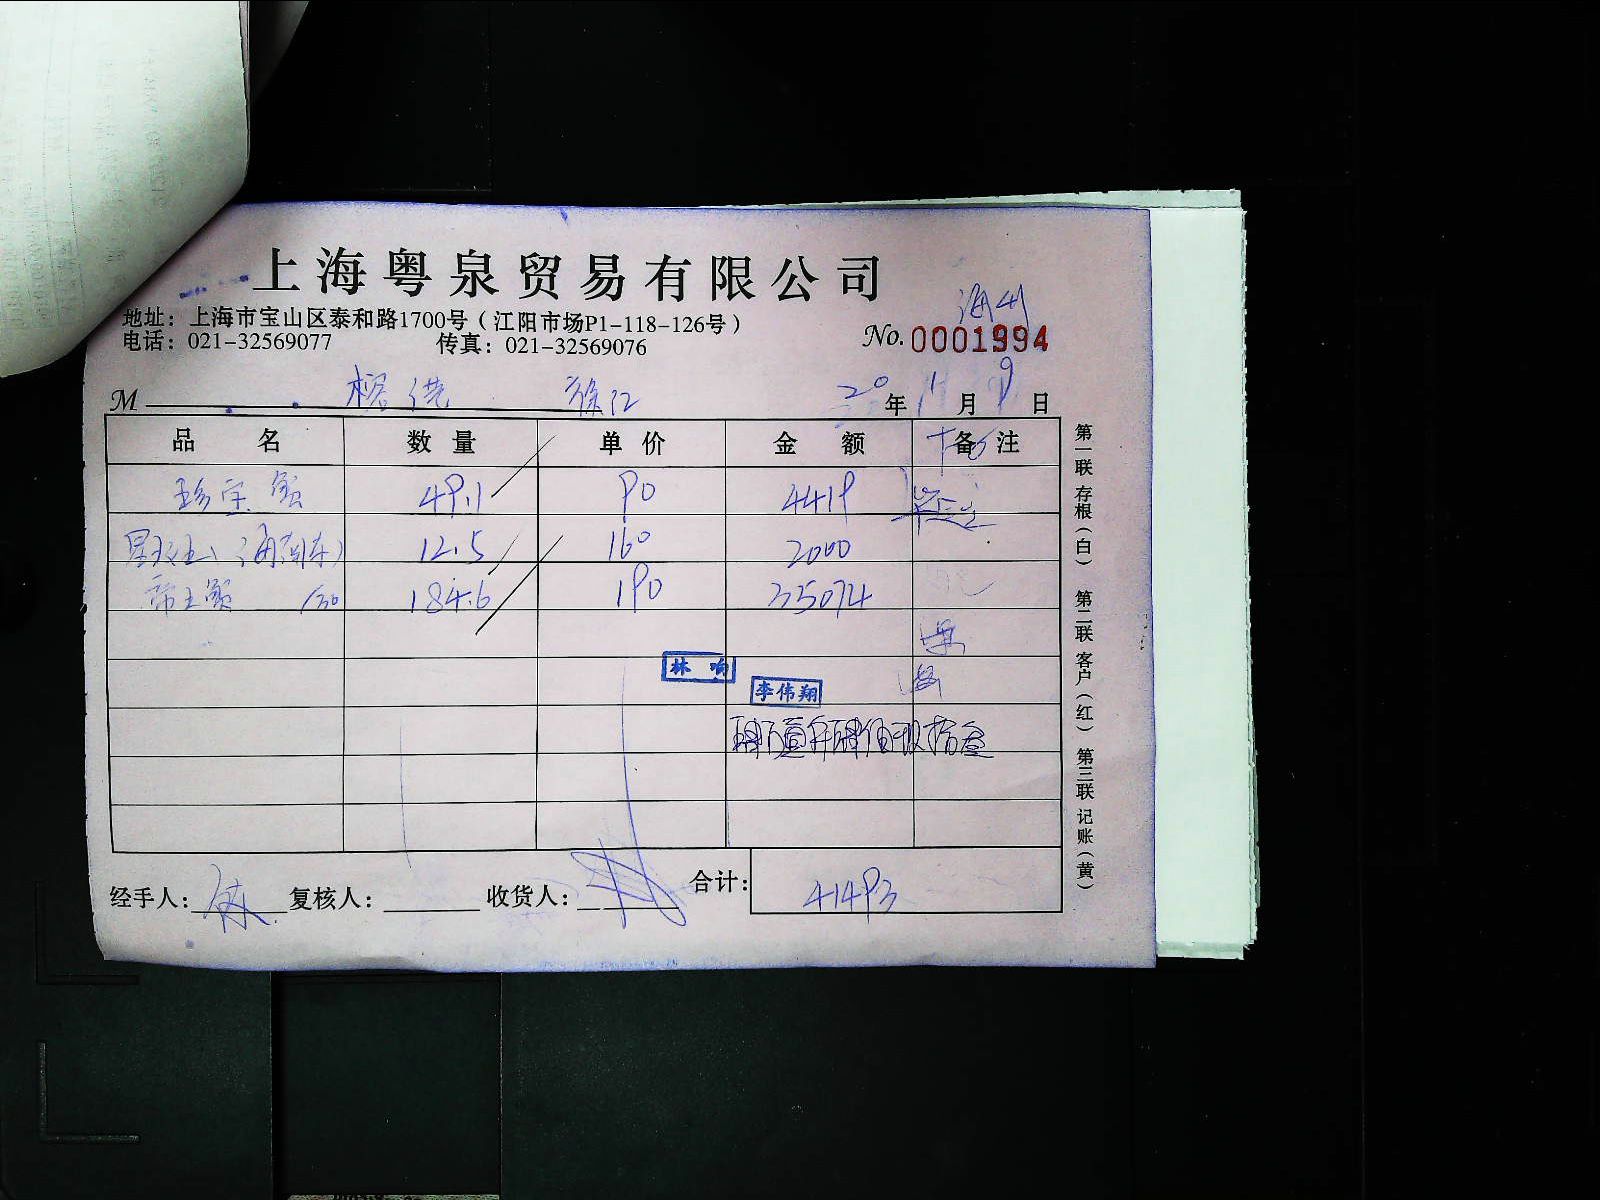 上海粤泉贸易有限公司
地址：上海市宝山区泰和路1700号（江阳市场P1-118-126号）
电话：021-32569077 传真：021-32569076
No. 0001994
M 徐汇 20年1月9日
品名 数量 单价 金额 备注
珍宝蟹 49.1 90 4419
12.5 160 2000
帝王蟹 184.6 190 35074
林 响
李伟翔
肆万壹仟肆佰玖拾叁
经手人： 复核人： 收货人： 合计： 41493
第一联 存根（白） 第二联 客户（红） 第三联 记账（黄）